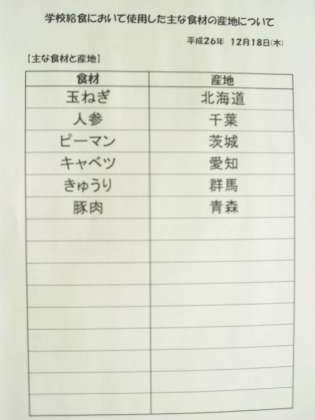 学校給食において使用した主な食材の産地について
平成26年 12月18日(木)
【主な食材と産地】
食材 産地
玉ねぎ 北海道
人参 千葉
ピーマン 茨城
キャベツ 愛知
きゅうり 群馬
豚肉 青森